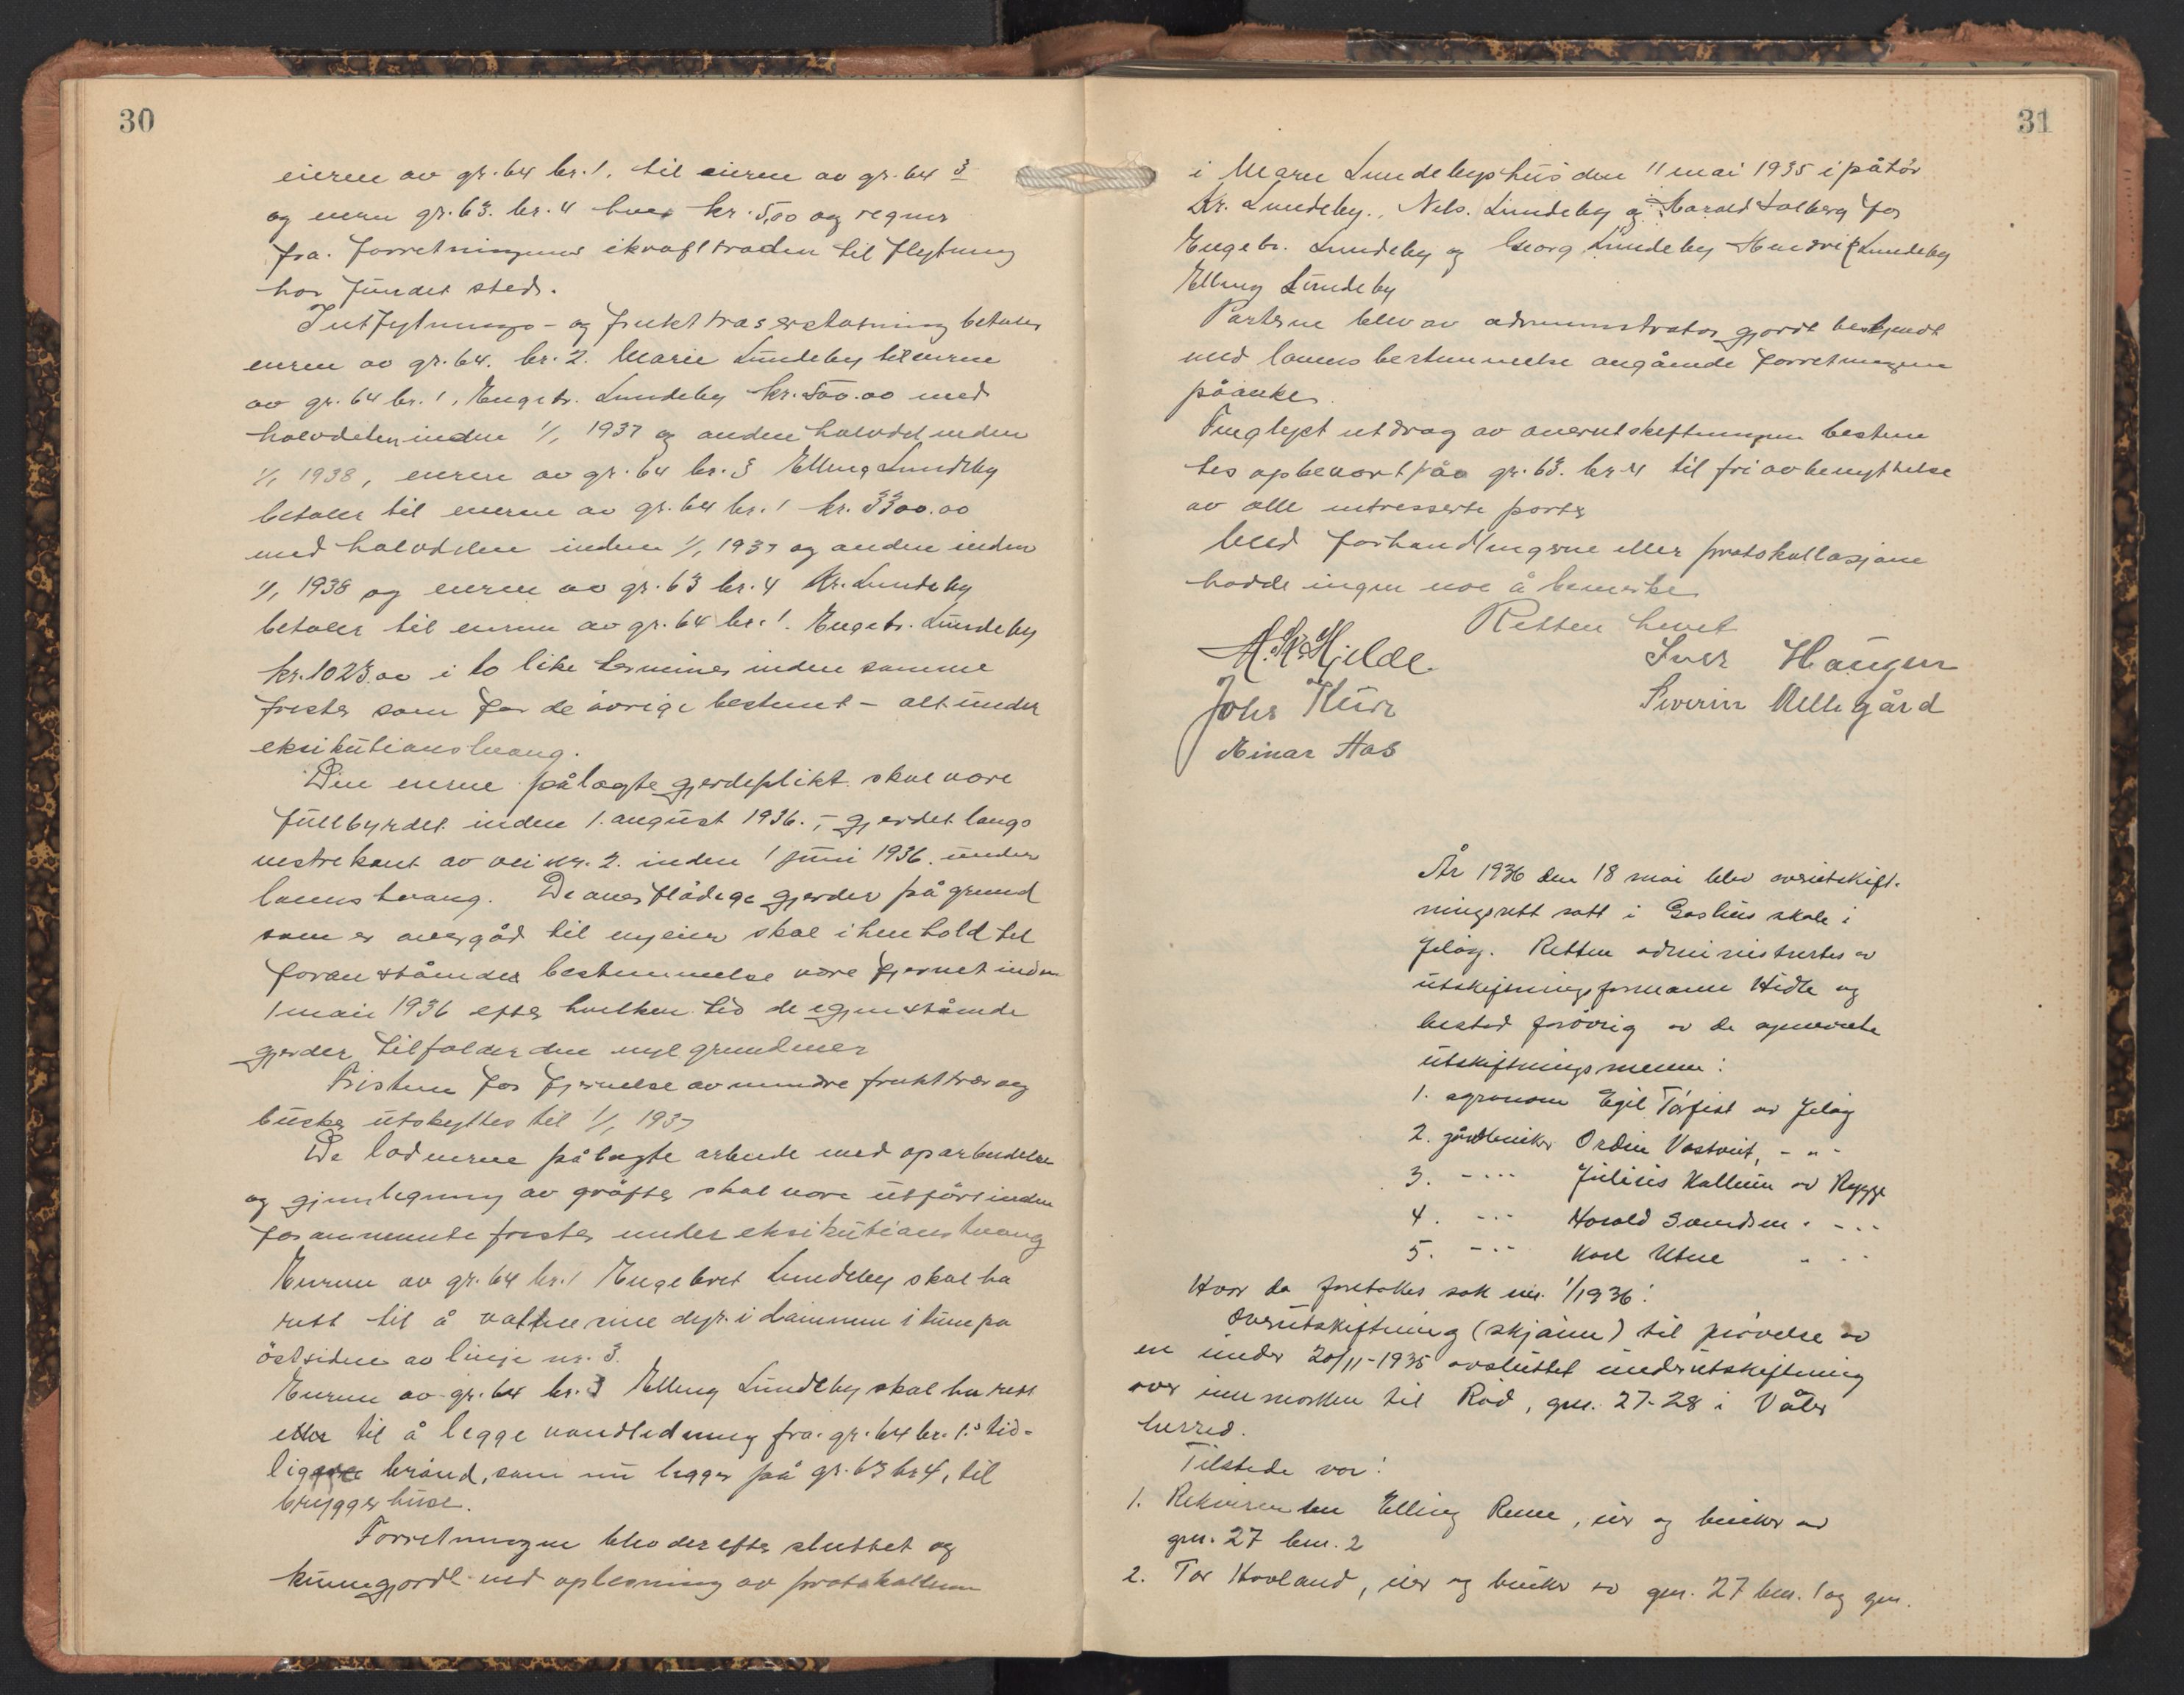 30
eieren av gr. 64 br. 1. til eieren av gr. 64 3
og eieren gr. 63. br. 4 hver kr. 5,00 og regnes
fra forretningens ikrafttræden til flytning
har fundet sted.
Indflytnings- og frukttræserstatning betaler
eieren av gr. 64. br. 2. Marie Lundeby til eieren
av gr. 64 br. 1, Engebr. Lundeby kr. 500.00 med
halvdelen inden 1/1 1937 og anden halvdel inden
1/1 1938, eieren av gr. 64 br. 3 Elling Lundeby
betaler til eieren av gr. 64 br. 1 kr. 3300.00
med halvdelen inden 1/1 1937 og anden inden
1/1 1938 og eieren av gr. 63 br. 4 Kr. Lundeby
betaler til eieren av gr. 64 br. 1. Engebr. Lundeby
kr. 1023.00 i to like terminer inden samme
frister som for de øvrige bestemt – alt under
eksikutionstvang.
Den eierne pålagte gjerdeplikt skal være
fullbyrdet inden 1. august 1936. – gjerdet langs
vestre kant av vei nr. 2. inden 1 juni 1936. under
lovens tvang. De overflødige gjerder på grund
som er overgåd til ny eier skal i henhold til
foranstående bestemmelse være fjernet inden
1 mai 1936 efter hvilken tid de igjenstående
gjerder tilfalder den nye grundeier
Fristen for fjernelse av mindre frukttrær og
busker utskyttes til 1/1 1937
De lodeierne pålagte arbeide med oparbeidelse
og gjenlegning av grøfter skal være utført inden
forannevnte frister under eksikutionstvang
Eieren av gr. 64 br. 1 Engebret Lundeby skal ha
rett til å vattne sine dyr i dammen i tunet på
østsiden av linje nr. 3.
Eieren av gr. 64 br. 3 Elling Lundeby skal ha rett
eller til å legge vandledning fra gr. 64 br. 1's tid-
ligere brønd, som nu ligger på gr. 63 br 4, til
bryggerhuset.
Forretningen blev derefter sluttet og
kunngjordt ved oplesning av protokollen
31
i Marie Lundebys hus den 11 mai 1935 i påhør
Kr. Lundeby., Nils. Lundeby og Harald Solberg for
Engebr. Lundeby og Georg Lundeby Hendrik Lundeby
Elling Lundeby
Parterne blev av administrator gjordt bekjendt
med lovens bestemmelse angående forretningens
påanke.
Tinglyst utdrag av overutskiftningen bestem
tes opbevart på gr. 63. br 4 til fri avbenyttelse
av alle intresserte parter
Med forhandlingerne eller protokollasjone
hadde ingen noe å bemerke
Retten hevet
Iver Haugen
Johs Thürr
Severin Vellegård
Einar Aas
År 1936 den 18 mai blev overutskift-
ningsrett satt i Goshus skole i
Jeløy. Retten administrertes av
utskiftningsformann Hidle og
bestod forøvrig av de opnevnte
utskiftningsmenn:
1. agronom Egil Torfist av Jeløy
2. gårdbruker Ordin Vastvit, - " -
3. - " - Julius Kallum av Rygge
4. - " - Harald Svendsen " - " -
5. - " - Karl Utne " - " -
Hvor da foretokes sak nr. 1/1936:
Overutskiftning (skjønn) til prøvelse av
en under 20/11-1935 avsluttet underutskiftning
over innmarken til Rød, gnr. 27-28 i Våler
herred.
Tilstede var:
1. Rekvirenten Elling Rene, eier og bruker av
gnr. 27 bnr. 2
2. Tor Hovland, eier og bruker av gnr. 27 bnr. 1 og gnr.